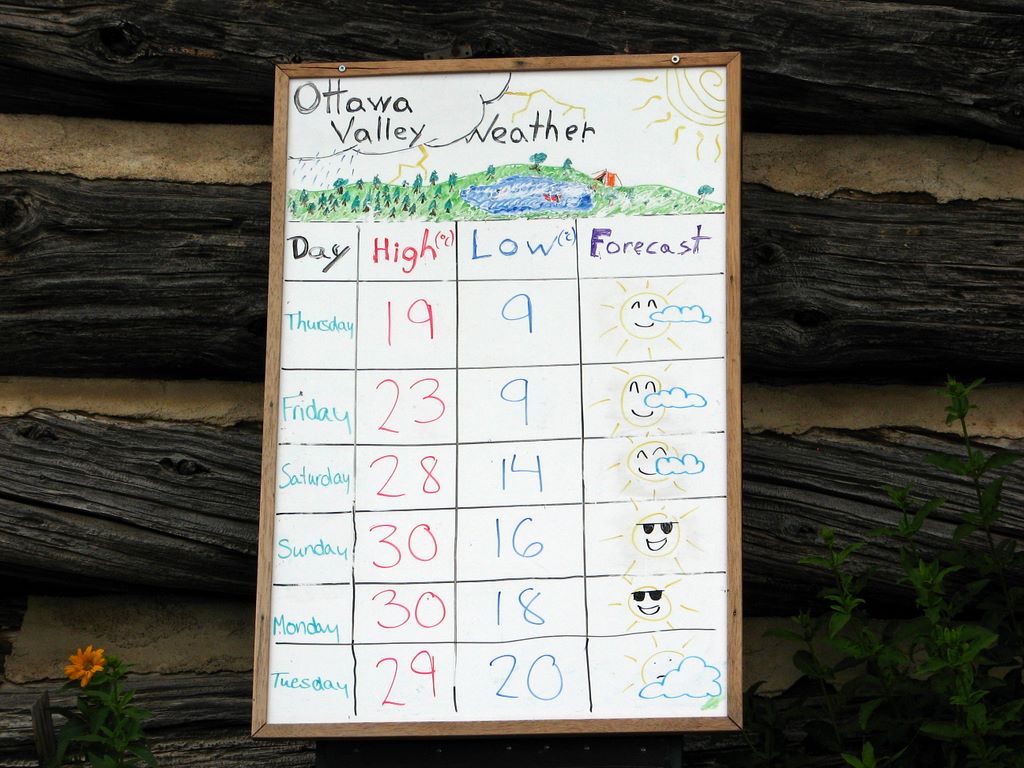 Ottawa
Valley Weather
Day High (°C) Low (°C) Forecast
Thursday 19 9
Friday 23 9
Saturday 28 14
Sunday 30 16
Monday 30 18
Tuesday 29 20